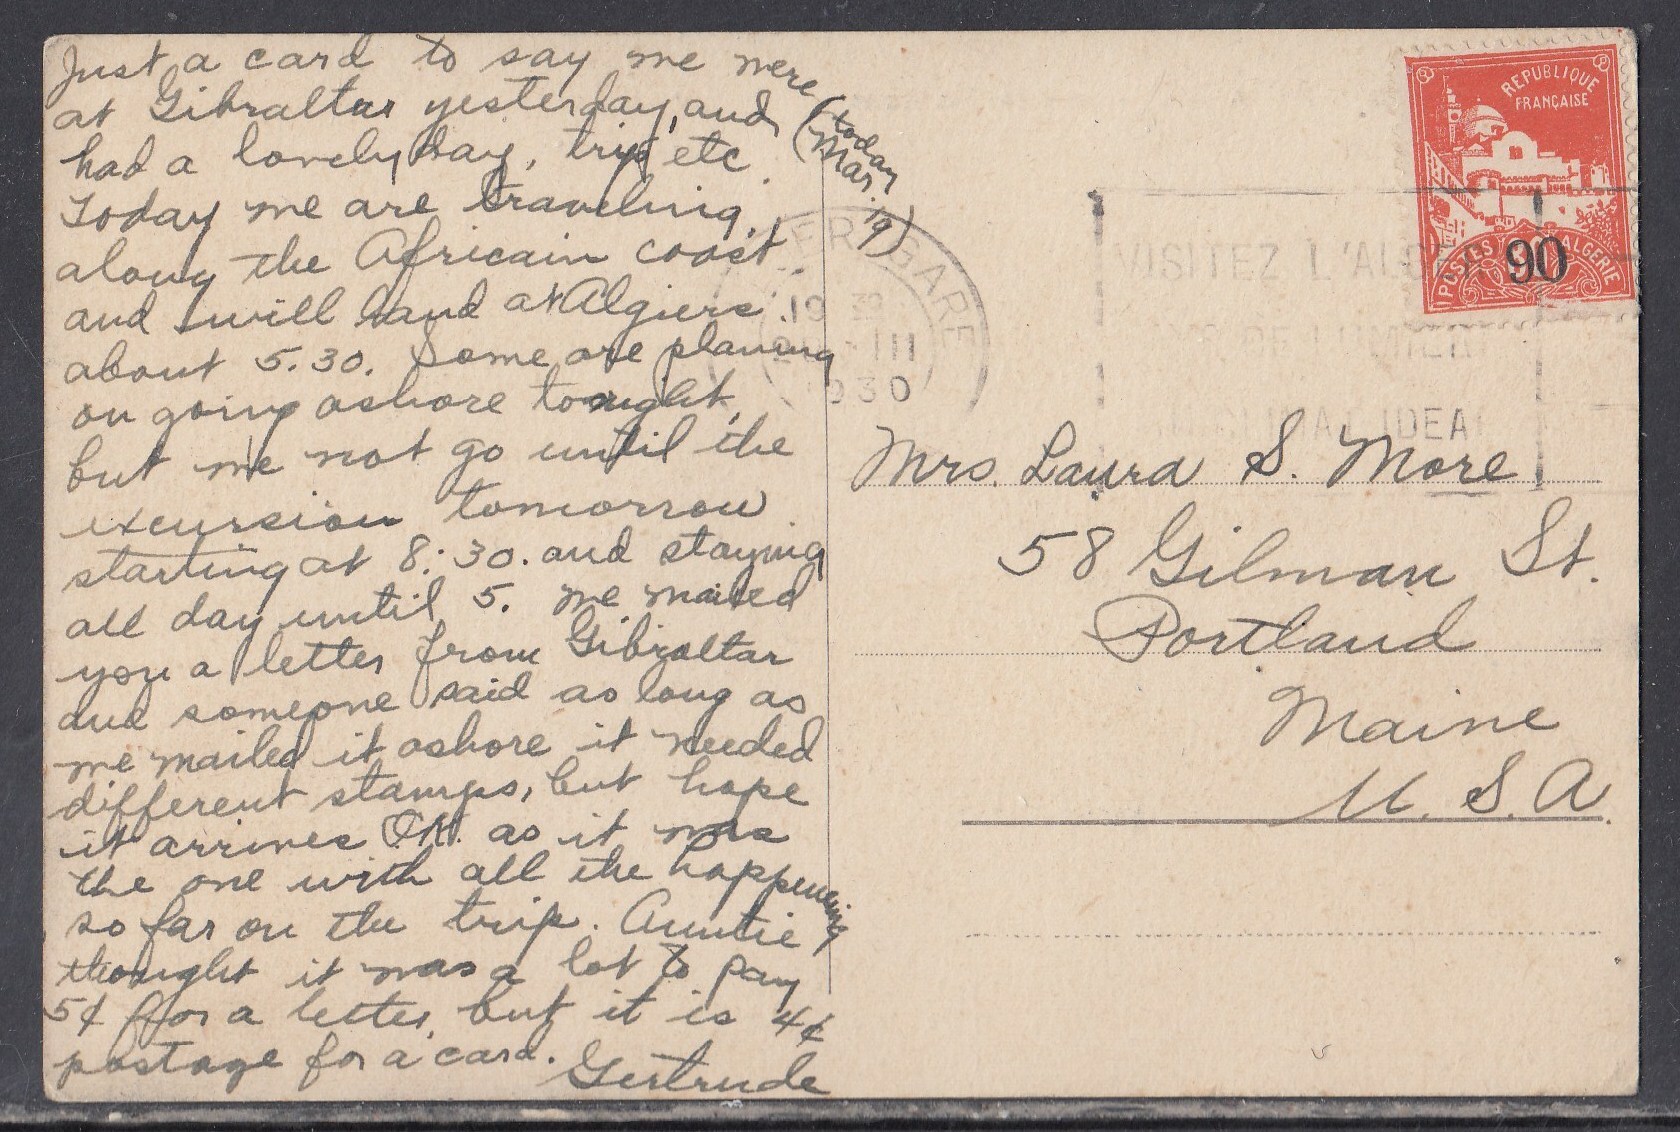 Just a card to say we were
at Gibraltar yesterday, and
had a lovely day, trip etc.
(today
Mar. 19)
Today we are traveling
along the Africain coast
and will land at Algiers
about 5.30. Some are planing
on going ashore tonight,
but we not go until the
excursion tomorrow
starting at 8:30. and staying
all day until 5. We mailed
you a letter from Gibraltar
and someone said as long as
we mailed it ashore it needed
different stamps, but hope
it arrives O.K. as it was
the one with all the happening
so far on the trip. Auntie
thought it was a lot to pay
5¢ for a letter, but it is 4¢
postage for a card.
Gertrude
REPUBLIQUE
FRANÇAISE
POSTES ALGERIE
90
GARE
19 30
-III
1930
VISITEZ L'ALGER
DE LUMIER
CLIMAT IDEAL
Mrs. Laura S. More
58 Gilman St.
Portland
Maine
U.S.A.